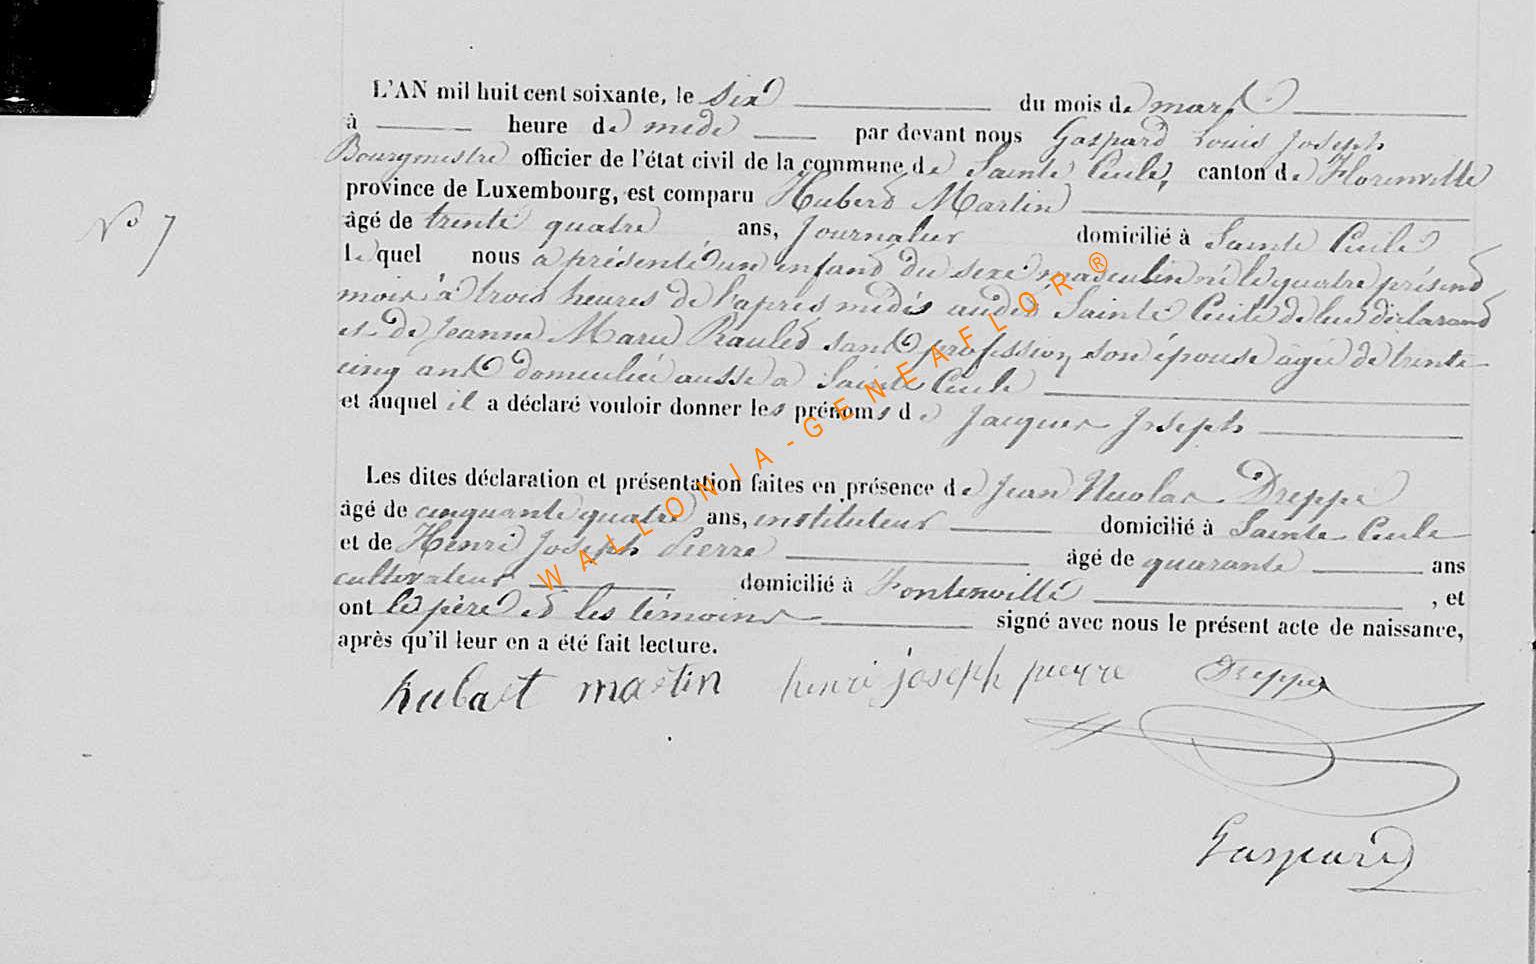 L'AN mil huit cent soixante, le six du mois de mars
à heure de midi par devant nous Gaspard Louis Joseph
Bourgmestre officier de l'état civil de la commune de Sainte Cécile, canton de Florenville
province de Luxembourg, est comparu Hubert Martin
âgé de trente quatre ans, Journalier domicilié à Sainte Cécile
N° 7
lequel nous a présenté un enfant du sexe masculin né le quatre présent
mois à trois heures de l'après midi audit Sainte Cécile de lui déclarant
et de Jeanne Marie Raulet sans profession son épouse âgée de trente
cinq ans domiciliée aussi à Sainte Cécile
et auquel il a déclaré vouloir donner les prénoms de Jacques Joseph
Les dites déclaration et présentation faites en présence de Jean Nicolas Dreppe
âgé de cinquante quatre ans, instituteur domicilié à Sainte Cécile
et de Henri Joseph Pierre âgé de quarante ans
cultivateur domicilié à Fontenoille , et
ont le père et les témoins signé avec nous le présent acte de naissance,
après qu'il leur en a été fait lecture.
hubart martin henri joseph pierre Dreppe
Gaspard
WALLONIA-GENEAFLOR®